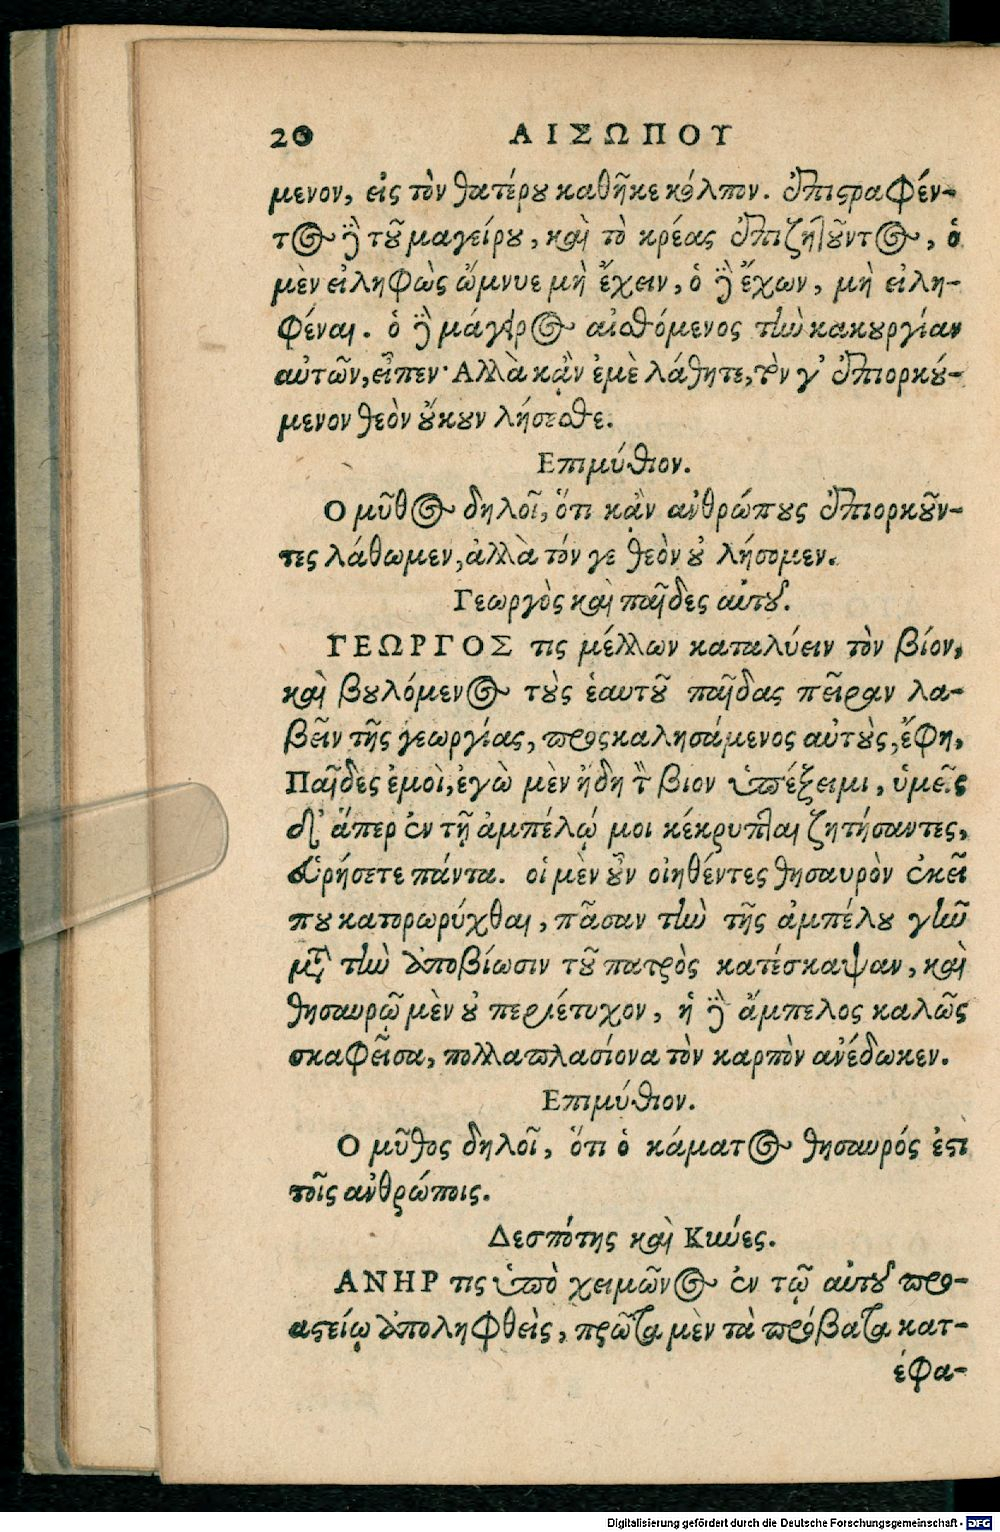 20 ΑΙΣΩΠΟΥ
μενον, εἰς τὸν θατέρου καθῆκε κόλπον. ἐπιστραφέν-
τος δὲ τοῦ μαγείρου, καὶ τὸ κρέας ἐπιζητοῦντος, ὁ
μὲν εἰληφὼς ὤμνυε μὴ ἔχειν, ὁ δὲ ἔχων, μὴ εἰλη-
φέναι. ὁ δὲ μάγειρος αἰσθόμενος τὴν κακουργίαν
αὐτῶν, εἶπεν· Αλλὰ κἂν ἐμὲ λάθητε, τὸν γ' ἐπιορκού-
μενον θεὸν οὔκουν λήσεσθε.
Επιμύθιον.
Ο μῦθος δηλοῖ, ὅτι κἂν ἀνθρώπους ἐπιορκοῦν-
τες λάθωμεν, ἀλλὰ τόν γε θεὸν οὐ λήσομεν.
Γεωργὸς καὶ παῖδες αὐτοῦ.
ΓΕΩΡΓΟΣ τις μέλλων καταλύειν τὸν βίον,
καὶ βουλόμενος τοὺς ἑαυτοῦ παῖδας πεῖραν λα-
βεῖν τῆς γεωργίας, προσκαλησάμενος αὐτοὺς, ἔφη,
Παῖδὲς ἐμοὶ, ἐγὼ μὲν ἤδη τὸν βιον ὑπέξειμι, ὑμεῖς
δ' ἅπερ ἐν τῇ ἀμπέλῳ μοι κέκρυπται ζητήσαντες,
εὑρήσετε πάντα. οἱ μὲν οὖν οἰηθέντες θησαυρὸν ἐκεῖ
που κατορωρύχθαι, πᾶσαν τὴν τῆς ἀμπέλου γῆν
μετὰ τὴν ἀποβίωσιν τοῦ πατρὸς κατέσκαψαν, καὶ
θησαυρῷ μὲν οὐ περιέτυχον, ἡ δὲ ἄμπελος καλῶς
σκαφεῖσα, πολλαπλασίονα τὸν καρπὸν ἀνέδωκεν.
Επιμύθιον.
Ο μῦθος δηλοῖ, ὅτι ὁ κάματος θησαυρός ἐστὶ
τοῖς ἀνθρώποις.
Δεσπότης καὶ Κύνες.
ΑΝΗΡ τις ὑπὸ χειμῶνος ἐν τῷ αὐτοῦ προ-
αστείῳ ἀποληφθεὶς, πρῶτα μὲν τὰ πρόβατα κατ-
έφα-
Digitalisierung gefördert durch die Deutsche Forschungsgemeinschaft - DFG